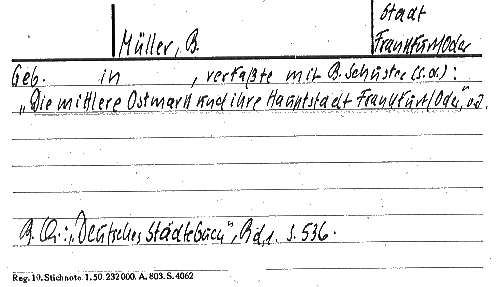 Stadt
Müller, B. Frankfurt/Oder
Geb. in , verfaßte mit B. Schuster (s.d.):
„Die mittlere Ostmark und ihre Hauptstadt Frankfurt/Oder“,
B. Qu.: „Deutsches Städtebuch“, Bd. 1. S. 536.
Reg. 10. Stichnote. 1. 50. 232000. A. 803. S. 4062